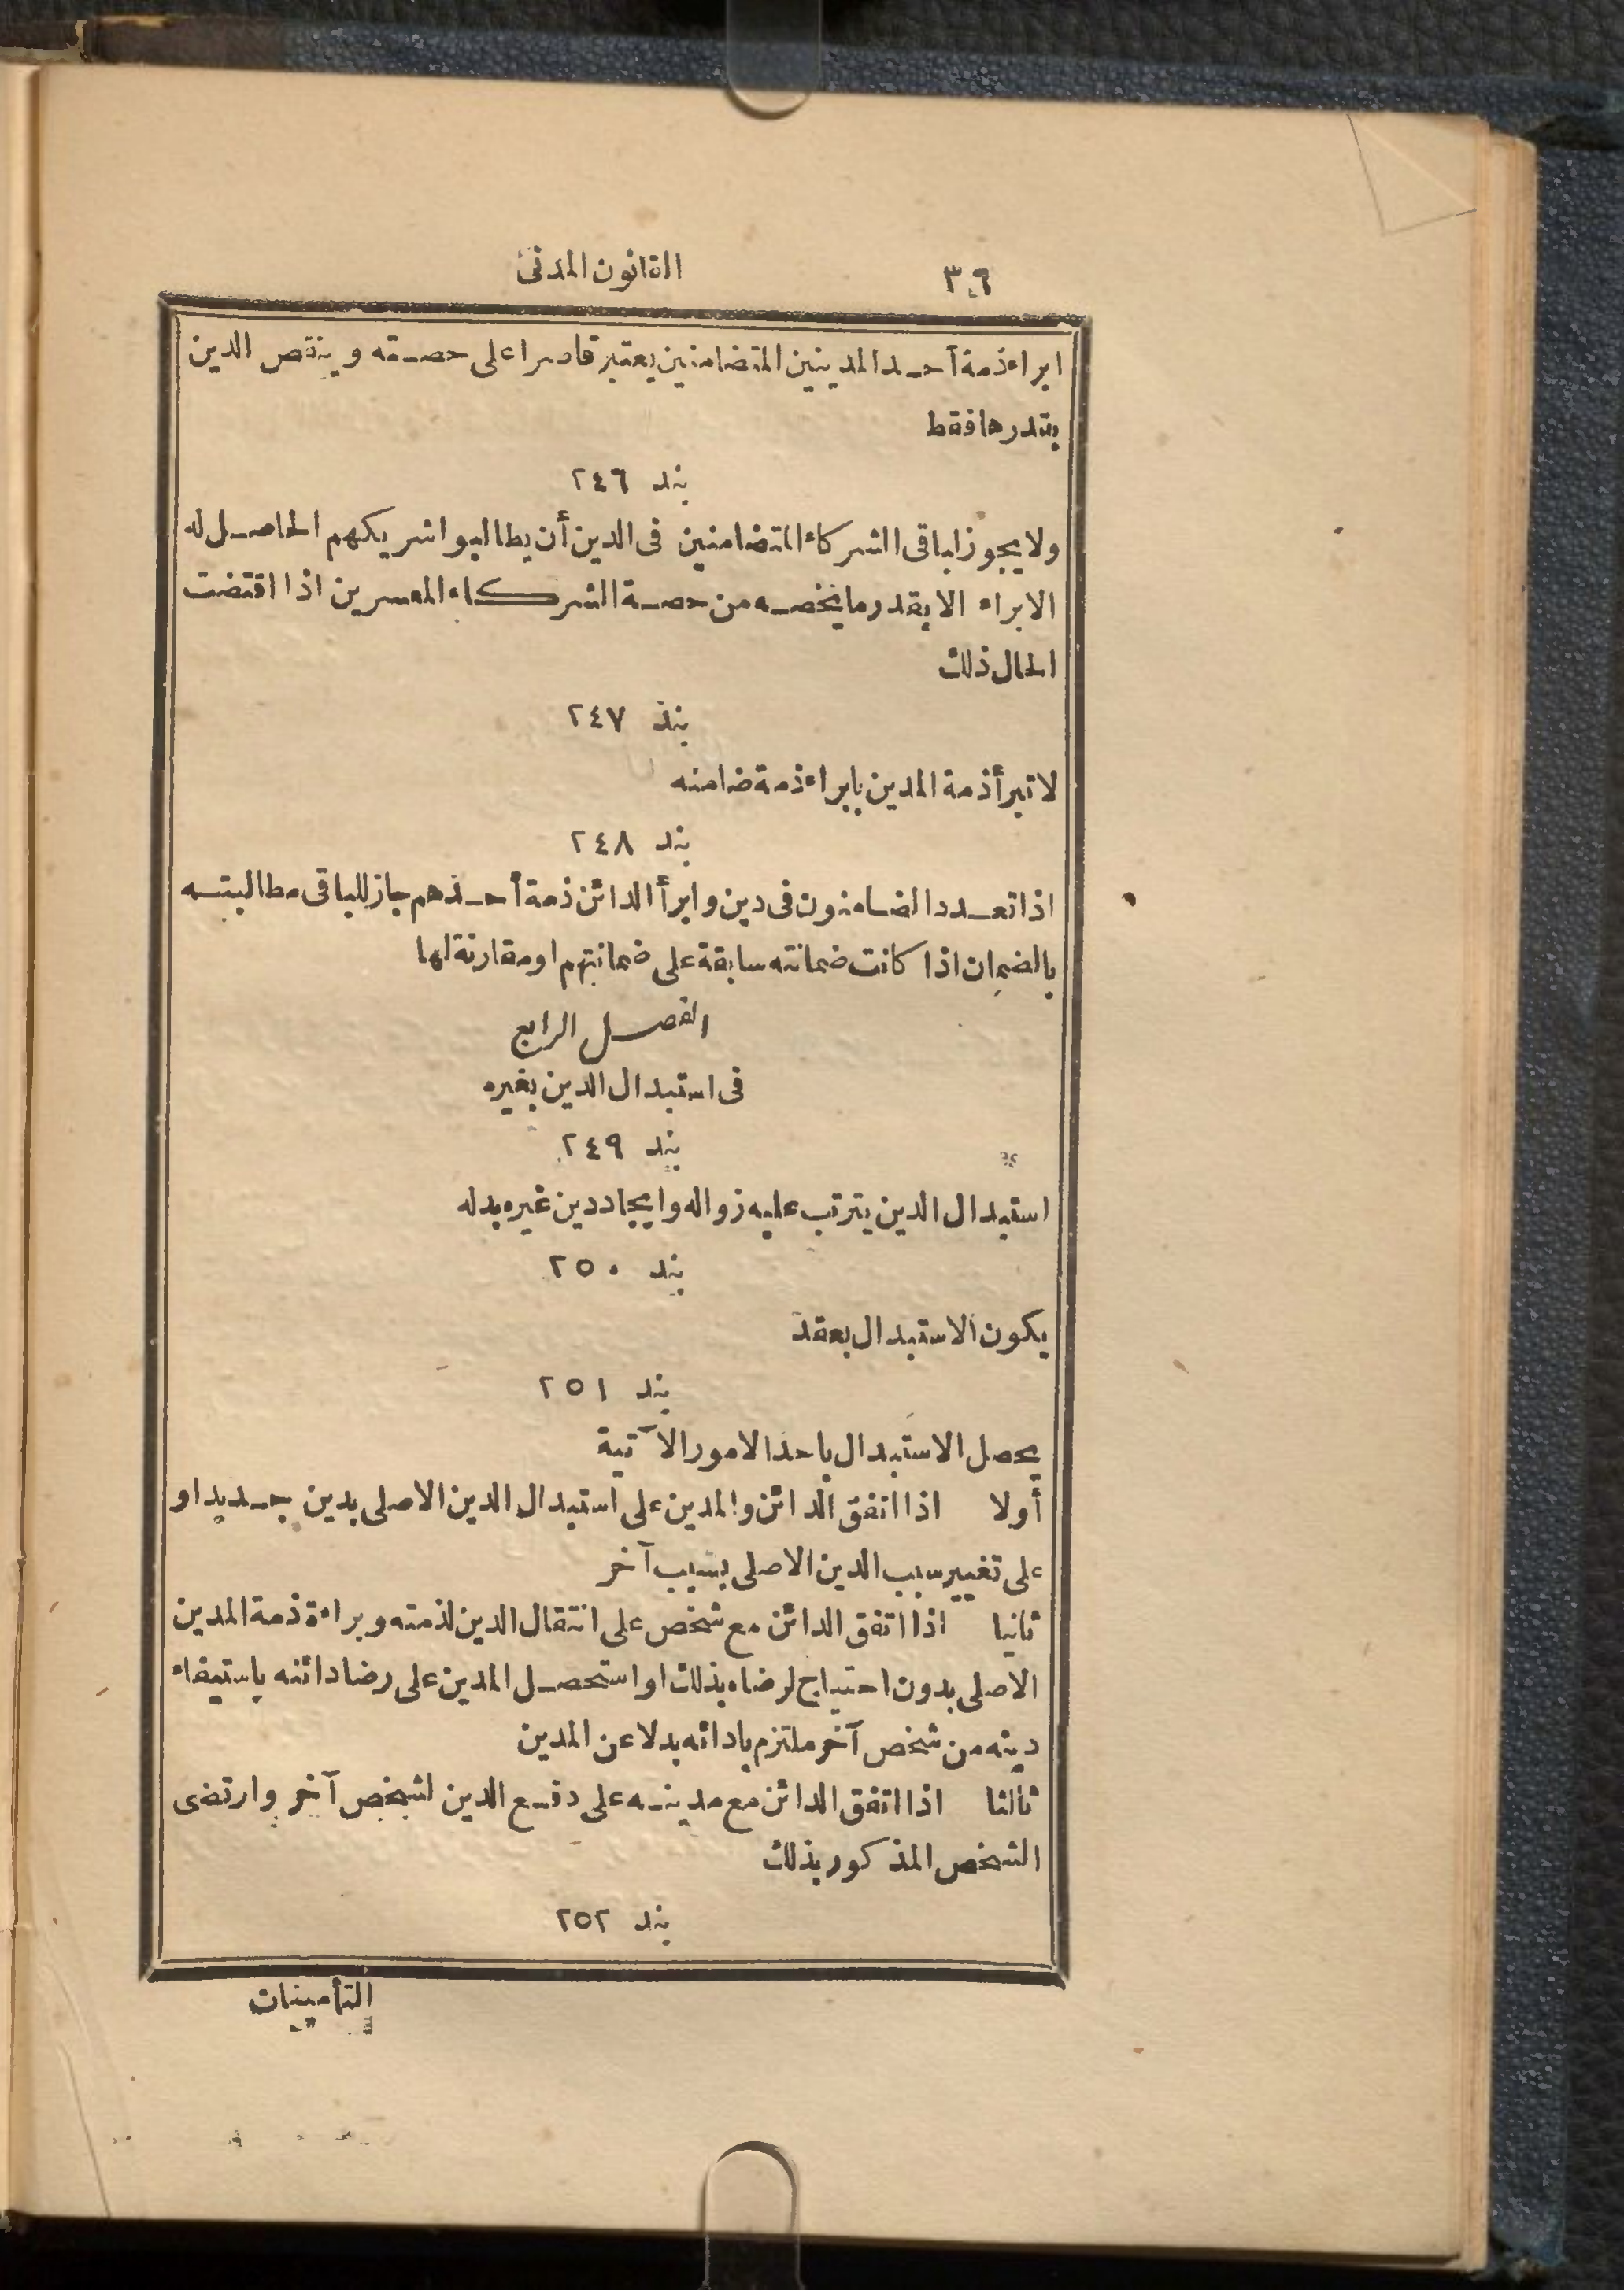 ٣٦ القانون المدنى
ابراء ذمة أحد المدينين المتضامنين يعتبر قاصرا على حصته وينقص الدين
بقدرها فقط
بند ٢٤٦
ولا يجوز لباقى الشركاء المتضامنين فى الدين أن يطالبوا شريكهم الحاصل له
الابراء الا بقدر ما يخصه من حصة الشركاء المعسرين اذا اقتضت
الحال ذلك
بند ٢٤٧
لا تبرأ ذمة المدين بابراء ذمة ضامنه
بند ٢٤٨
اذا تعدد الضامنون فى دين وابرأ الدائن ذمة أحدهم جاز للباقى مطالبته
بالضمان اذا كانت ضمانته سابقة على ضمانتهم او مقارنة لها
الفصل الرابع
فى استبدال الدين بغيره
بند ٢٤٩
استبدال الدين يترتب عليه زواله وايجاد دين غيره بدله
بند ٢٥٠
يكون الاستبدال بعقد
بند ٢٥١
يحصل الاستبدال باحد الامور الآتية
أولا اذا اتفق الدائن والمدين على استبدال الدين الاصلى بدين جديد او
على تغيير سبب الدين الاصلى بسبب آخر
ثانيا اذا اتفق الدائن مع شخص على انتقال الدين لذمته وبراءة ذمة المدين
الاصلى بدون احتياج لرضاه بذلك او استحصل المدين على رضا دائنه باستيفاء
دينه من شخص آخر ملتزم بادائه بدلا عن المدين
ثالثا اذا اتفق الدائن مع مدينه على دفع الدين لشخص آخر وارتضى
الشخص المذكور بذلك
بند ٢٥٢
التأمينات